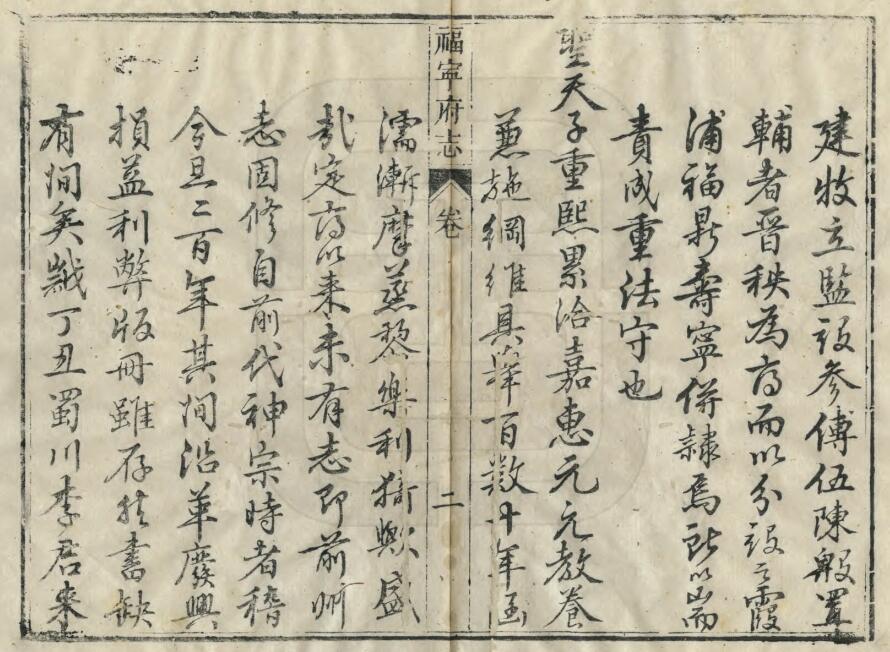 建牧立監設參傅伍陳殷置
輔者晉秩為府而以分設之霞
浦福鼎壽寧併隸焉所以耑
責成重法守也
聖天子重熙累洽嘉惠元元教養
兼施綱維具舉百數十年函
福寧府志 卷 二
濡漸摩蒸黎樂利猗歟盛
哉定府以來未有志即前州
志固修自前代神宗時者稽
今且二百年其間沿革廢興
損益利弊版冊雖存然書缺
有間矣歲丁丑蜀川李君來